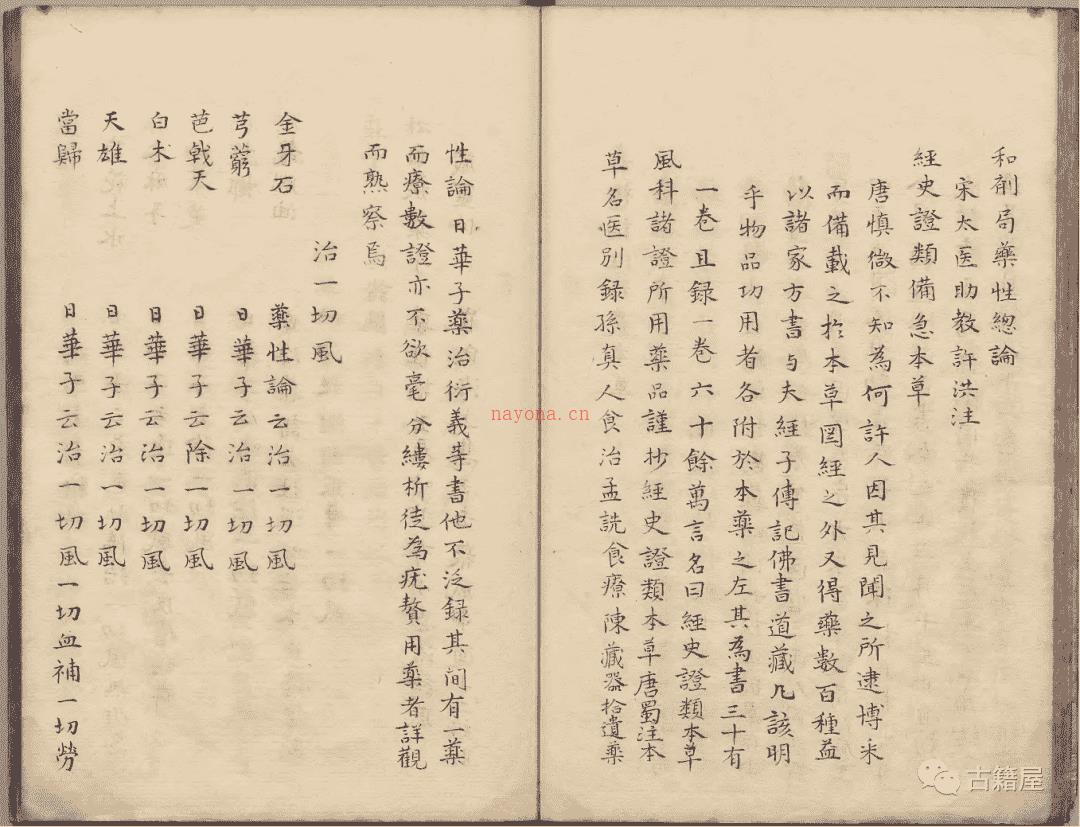 和剤局藥性總論
宋太医助教許洪注
經史證類備急本草
唐慎微不知為何許人因其見聞之所逮博采
而備載之扵本草圖經之外又得藥數百種益
以諸家方書与夫經子傳記佛書道藏凡該明
乎物品功用者各附於本藥之左其為書三十有
一卷且録一卷六十餘萬言名曰經史證類本草
風科諸證所用藥品謹抄經史證類本草唐蜀注本
草名医別録孫真人食治孟詵食療陳藏器拾遺藥
性論日華子藥治衍義等書他不泛録其间有一藥
而療數證亦不欲毫分縷析徒為疣贅用藥者詳觀
而熟察焉
治一切風
金牙石 藥性論云治一切風
芎藭 日華子云治一切風
芭戟天 日華子云除一切風
白术 日華子云治一切風
天雄 日華子云治一切風
當歸 日華子云治一切風一切血補一切勞
nayona.cn
古籍屋